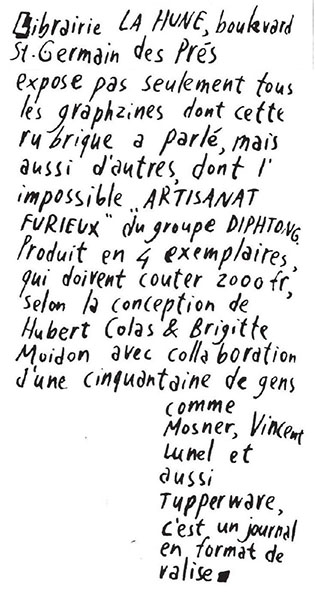 Librairie LA HUNE, boulevard
St. Germain des Prés
expose pas seulement tous
les graphzines dont cette
rubrique a parlé, mais
aussi d'autres, dont l'
impossible „ARTISANAT
FURIEUX" du groupe DIPHTONG.
Produit en 4 exemplaires,
qui doivent couter 2000 fr,
selon la conception de
Hubert Colas & Brigitte
Moidon avec collaboration
d'une cinquantaine de gens
comme
Mosner, Vincent
Lunel et
aussi
Tupperware,
c'est un journal
en format de
valise